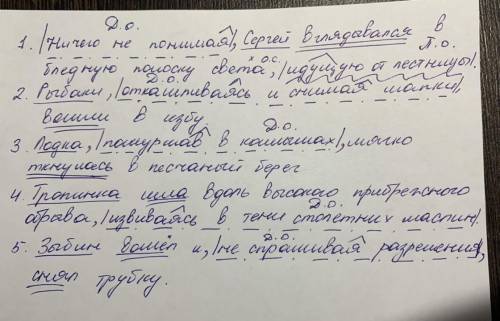 Д.О.
1. |Ничего не понимая|, Сергей вглядывался в
х О.С. П.О.
бледную полоску света, |идущую от лестницы|.
Д.О.
2. Рыбаки, |откашливаясь и снимая шапки|,
вошли в избу.
Д.О.
3. Лодка, |пошуршав в камышах|, мягко
ткнулась в песчаный берег
4. Тропинка шла вдоль высокого прибрежного
Д.О.
обрыва, |извиваясь в тени столетних маслин|.
Д.О.
5. Зыбин вошёл и, |не спрашивая разрешения|,
снял трубку.